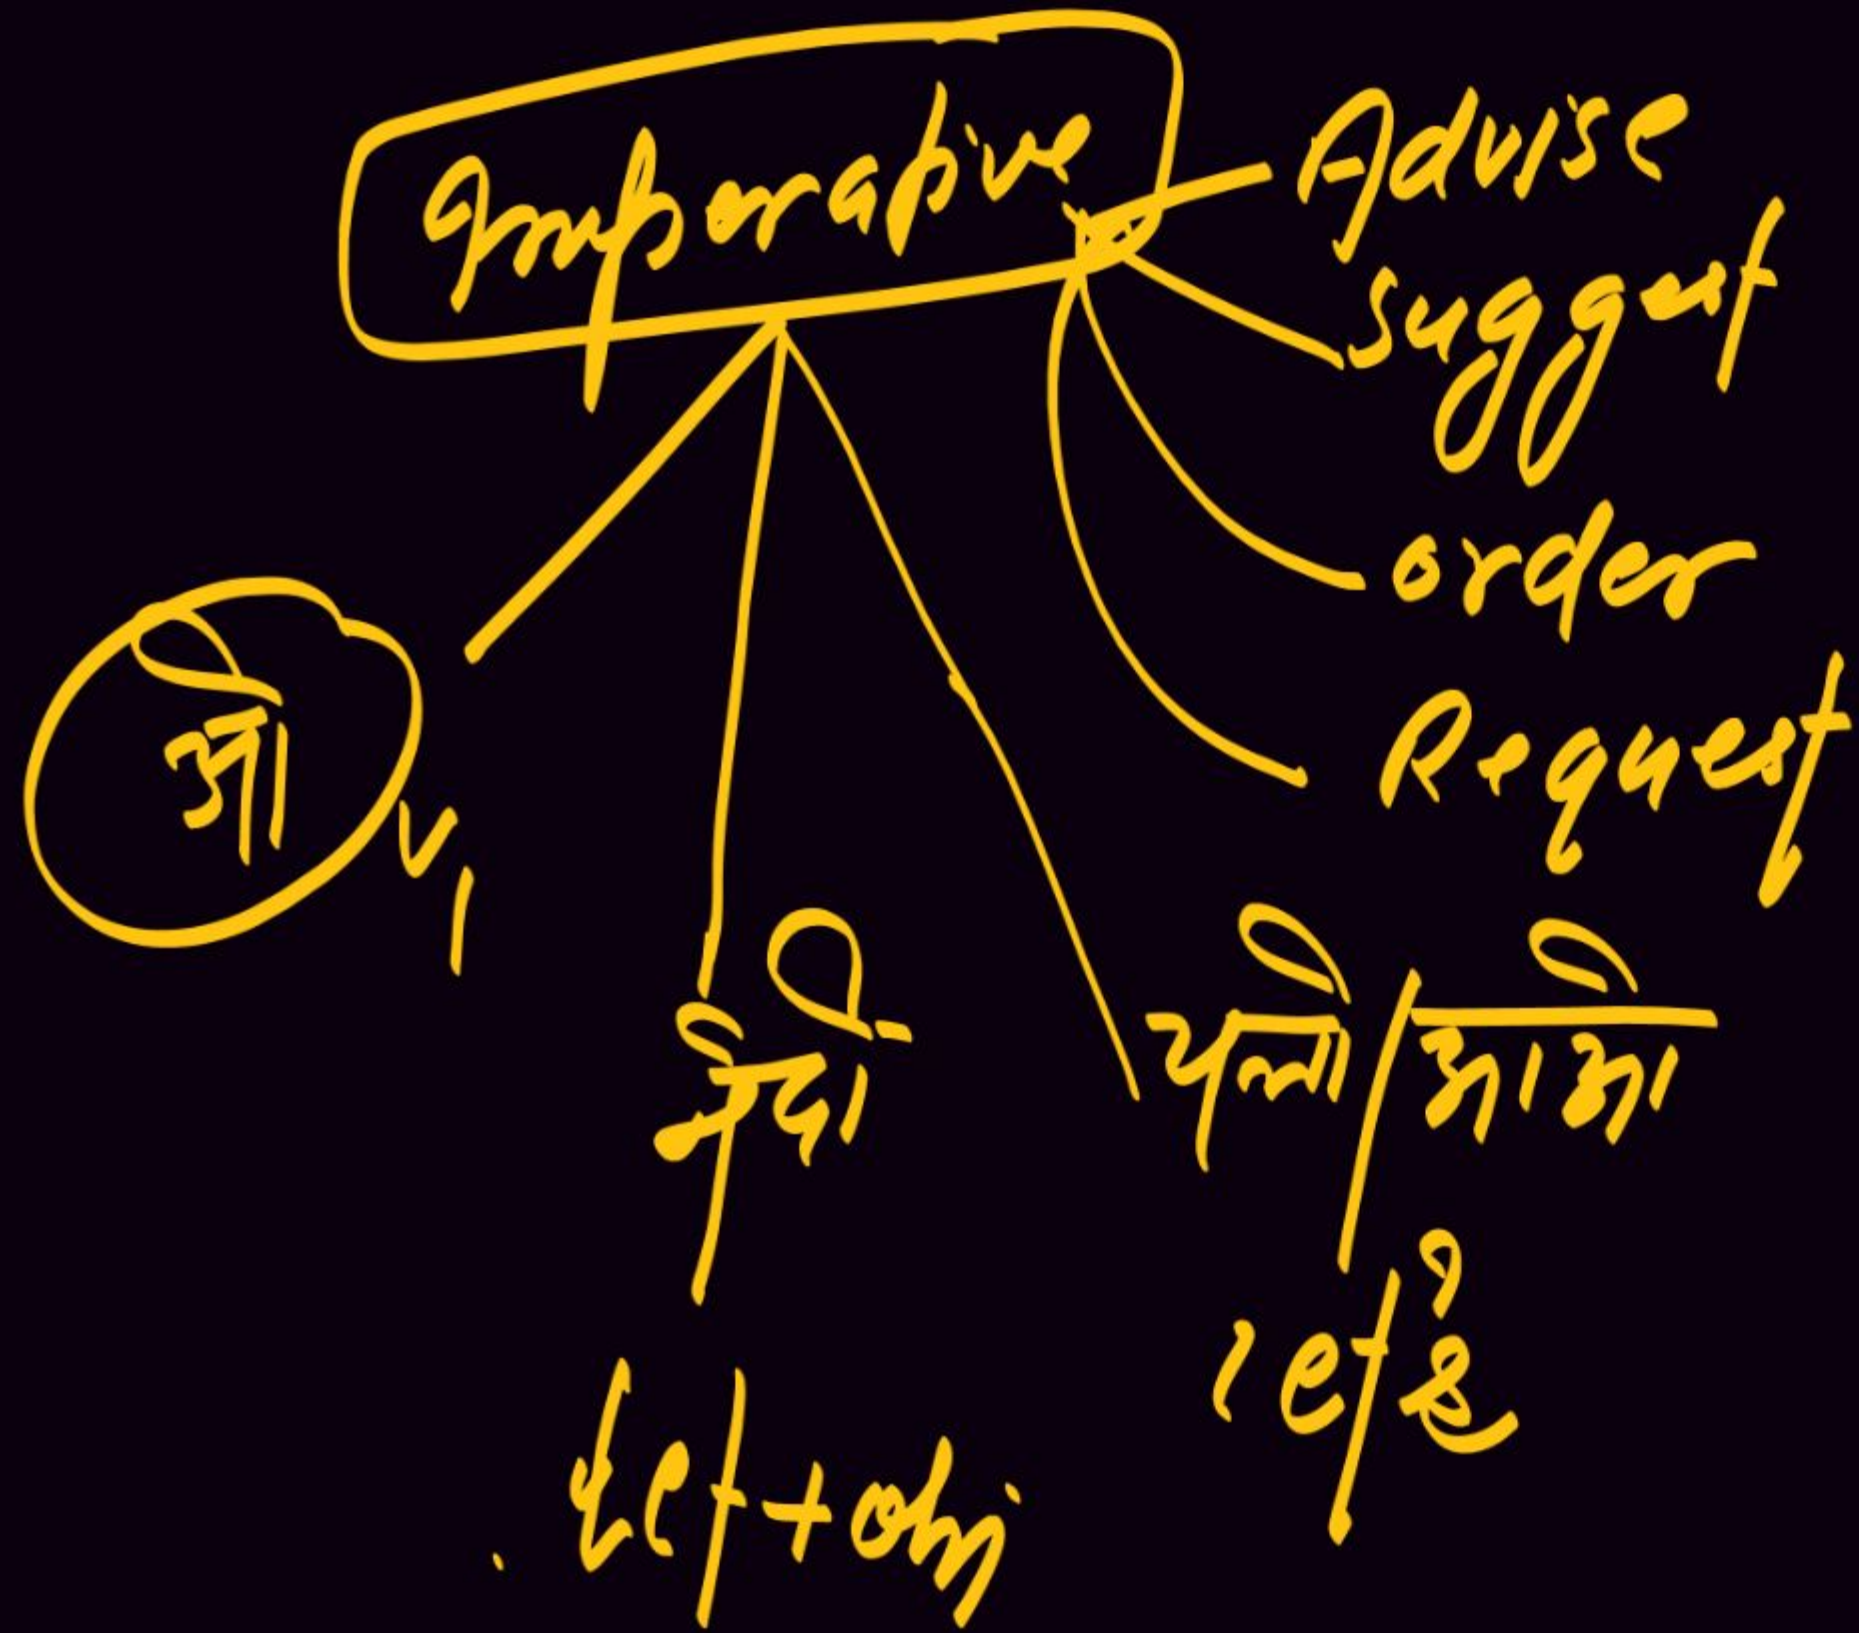 Imperative
Advise
suggest
order
Request
ओ
V1
ने दो
चलो/आओ
Let + obj
let's